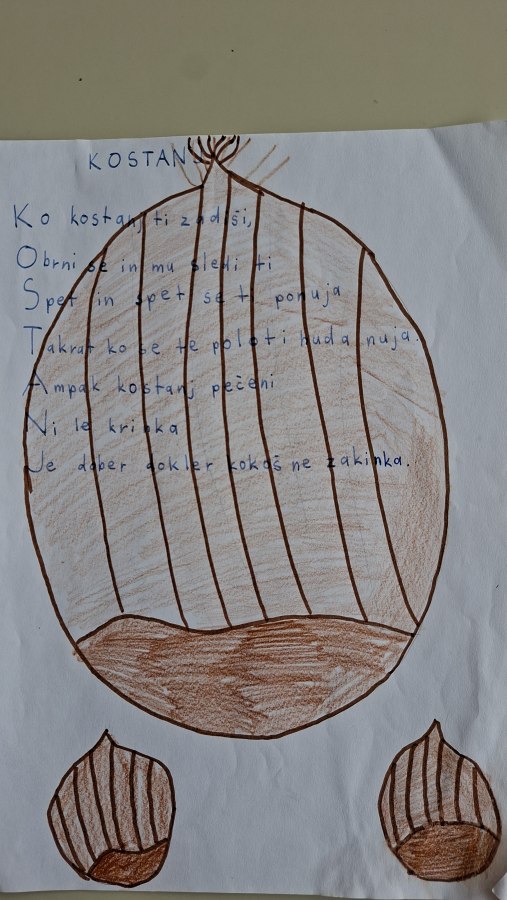 KOSTANJ
Ko kostanj ti zadiši,
Obrni se in mu sledi ti
Spet in spet se ti ponuja
Takrat ko se te poloti huda nuja.
Ampak kostanj pečeni
Ni le
Je dober dokler kokoš ne zakinka.